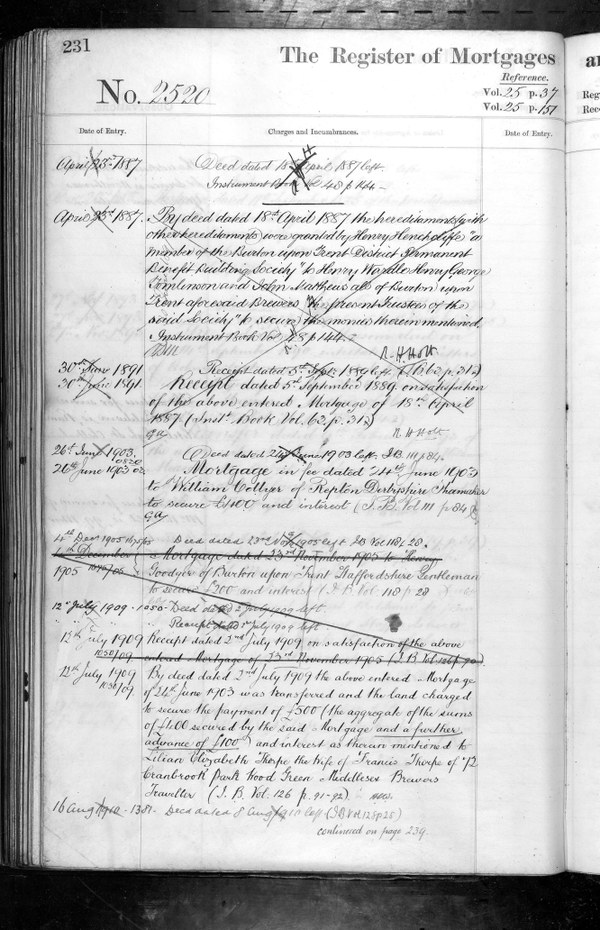 231
The Register of Mortgages
Reference.
No. 2520
Vol. 25 p. 37
Vol. 25 p. 151
Date of Entry.
Charges and Incumbrances.
Date of Entry.
April 23rd 1887
Deed dated 18th April 1887 left
Instrument Book Vol 48 p 144
April 23rd 1887.
By deed dated 18th April 1887 the hereditaments (with
other hereditaments) were granted by Henry Henchcliffe "a
member of the Burton upon Trent District Permanent
Benefit Building Society" to Henry Wardle Henry George
Tomlinson and John Matthews all of Burton upon
Trent aforesaid Brewers "the present Trustees of the
said Society" to secure the monies therein mentioned.
Instrument Book Vol 48 p 144.
R. H. Holt
30th June 1891
Receipt dated 5th Sept. 1889 left. (Vol. 62 p. 312)
30th June 1891.
Receipt dated 5th September 1889. on satisfaction
of the above entered Mortgage of 18th April
1887. (Inst. Book Vol. 62 p. 312)
R H Holt
26th June 1903.
Deed dated 24th June 1903 left. I.B. 111 p 84.
26th June 1903
Mortgage in fee dated 24th June 1903
to William Collyer of Repton Derbyshire
to secure £400 and interest (I. B. Vol 111 p 84)
4th Dec 1905
Deed dated 23rd Nov 1905 left IB Vol 118 p 28.
4th December
Mortgage dated 23rd November 1905 to Henry
1905
Goodger of Burton upon Trent Staffordshire Gentleman
to secure £300 and interest (I B. Vol 118 p 28
12th July 1909 - 1050 - Deed dated 2 July 1909 left
" " " Receipt dated 2nd July 1909 left
12th July 1909
Receipt dated 2nd July 1909 on satisfaction of the above
1050/09
entered Mortgage of 23rd November 1905 (I. B Vol. 126 p. 90)
12th July 1909
By deed dated 2nd July 1909 the above entered Mortgage
1050/09
of 24th June 1903 was transferred and the land charged
to secure the payment of £500 (the aggregate of the sums
of £400 secured by the said Mortgage and a further
advance of £100) and interest as therein mentioned to
Lilian Elizabeth Thorpe the wife of Francis Thorpe of 72
Cranbrook Park Wood Green Middlesex Brewers
Traveller (I. B. Vol. 126 p. 91-92)
16 Aug 1910 - 1381. Deed dated 8 Aug 1910 left (IB Vol 128 p 25)
continued on page 239.